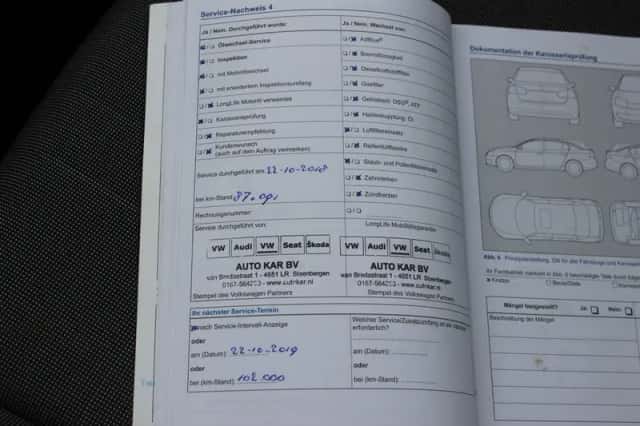 Service-Nachweis 4
Ja / Nein. Durchgeführt wurde:
Ölwechsel-Service
Inspektion
mit Motorölwechsel
mit erweitertem Inspektionsumfang
LongLife Motoröl verwendet
Karosserieprüfung
Reparaturempfehlung
Kundenwunsch
(auch auf dem Auftrag vermerken)
Service durchgeführt am: 22-10-2018
bei km-Stand: 87.091
Rechnungsnummer:
Service durchgeführt von:
VW Audi VW Seat Škoda
AUTO KAR BV
van Bredastraat 1 - 4651 LR Steenbergen
Stempel des Volkswagen Partners
Ja / Nein. Wechsel von:
AdBlue®
Bremsflüssigkeit
Dieselkraftstofffilter
Gasfilter
Haldexkupplung: Öl
Luftfiltereinsatz
Staub- und Pollenfiltereinsatz
Zahnriemen
Zündkerzen
LongLife Mobilitätsgarantie
VW Audi VW Seat Škoda
AUTO KAR BV
van Bredastraat 1 - 4651 LR Steenbergen
Stempel des Volkswagen Partners
Ihr nächster Service-Termin
nach Service-Intervall-Anzeige
oder
am (Datum): 22-10-2019
oder
bei (km-Stand): 102.000
erforderlich?
am (Datum):
oder
bei (km-Stand):
Dokumentation der Karosserieprüfung
Mängel festgestellt? Ja: Nein:
Beschreibung der Mängel: